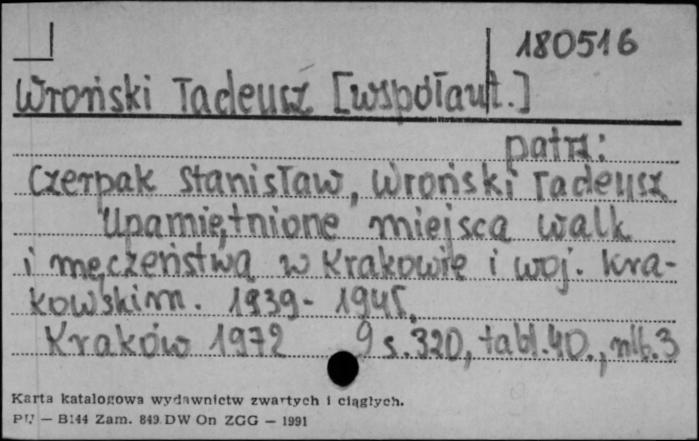 180516
Wroński Tadeusz [współaut.]
patrz:
Czerpak Stanisław, Wroński Tadeusz
Upamiętnione miejsca walk
i męczeństwa w Krakowie i woj. kra-
kowskim. 1939-1945.
Kraków 1972 s. 320, tabl. 40., nlb. 3
Karta katalogowa wydawnictw zwartych i ciągłych.
PU — B144 Zam. 849 DW On ZGG — 1991